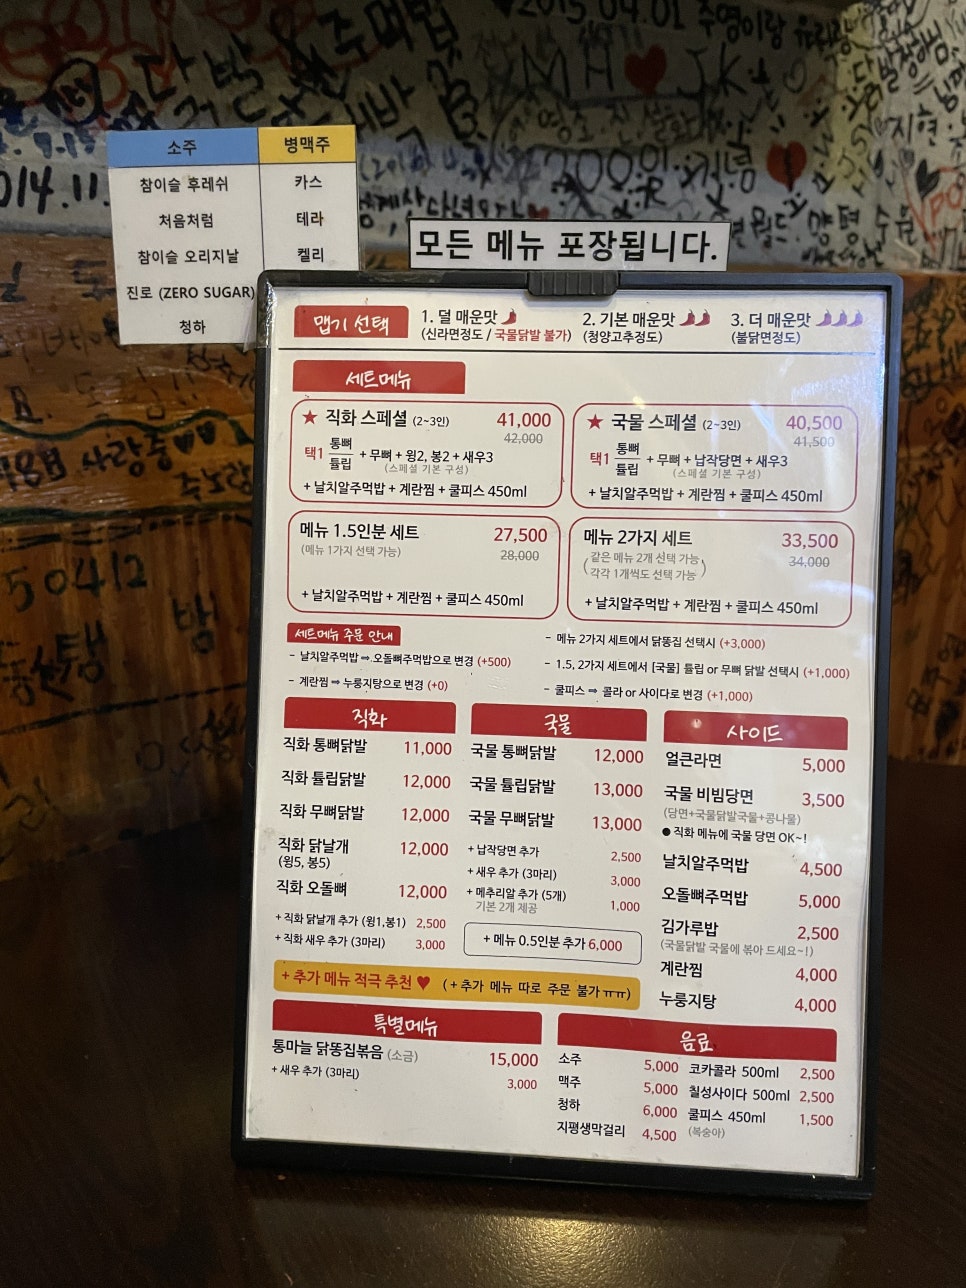 2015.04.01 주영이랑
MH ♥ JK
지현
014.11.
50412
소주 병맥주
참이슬 후레쉬 카스
처음처럼 테라
참이슬 오리지날 켈리
진로 (ZERO SUGAR)
청하
모든 메뉴 포장됩니다.
맵기 선택
1. 덜 매운맛
(신라면정도 / 국물닭발 불가)
2. 기본 매운맛
(청양고추정도)
3. 더 매운맛
(불닭면정도)
세트메뉴
★ 직화 스페셜 (2~3인) 41,000
42,000
택1 통뼈 튤립 + 무뼈 + 윙2, 봉2 + 새우3
(스페셜 기본 구성)
+ 날치알주먹밥 + 계란찜 + 쿨피스 450ml
★ 국물 스페셜 (2~3인) 40,500
41,500
택1 통뼈 튤립 + 무뼈 + 납작당면 + 새우3
(스페셜 기본 구성)
+ 날치알주먹밥 + 계란찜 + 쿨피스 450ml
메뉴 1.5인분 세트 27,500
(메뉴 1가지 선택 가능) 28,000
+ 날치알주먹밥 + 계란찜 + 쿨피스 450ml
메뉴 2가지 세트 33,500
(같은 메뉴 2개 선택 가능 34,000
각각 1개씩도 선택 가능)
+ 날치알주먹밥 + 계란찜 + 쿨피스 450ml
세트메뉴 주문 안내
- 날치알주먹밥 ⇒ 오돌뼈주먹밥으로 변경 (+500)
- 계란찜 ⇒ 누룽지탕으로 변경 (+0)
- 메뉴 2가지 세트에서 닭똥집 선택시 (+3,000)
- 1.5, 2가지 세트에서 [국물] 튤립 or 무뼈 닭발 선택시 (+1,000)
- 쿨피스 ⇒ 콜라 or 사이다로 변경 (+1,000)
직화
직화 통뼈닭발 11,000
직화 튤립닭발 12,000
직화 무뼈닭발 12,000
직화 닭날개 12,000
(윙5, 봉5)
직화 오돌뼈 12,000
+ 직화 닭날개 추가 (윙1,봉1) 2,500
+ 직화 새우 추가 (3마리) 3,000
국물
국물 통뼈닭발 12,000
국물 튤립닭발 13,000
국물 무뼈닭발 13,000
+ 납작당면 추가 2,500
+ 새우 추가 (3마리) 3,000
+ 메추리알 추가 (5개) 1,000
기본 2개 제공
+ 메뉴 0.5인분 추가 6,000
사이드
얼큰라면 5,000
국물 비빔당면 3,500
(당면+국물닭발국물+콩나물)
● 직화 메뉴에 국물 당면 OK~!
날치알주먹밥 4,500
오돌뼈주먹밥 5,000
김가루밥 2,500
(국물닭발 국물에 볶아 드세요~!)
계란찜 4,000
누룽지탕 4,000
+ 추가 메뉴 적극 추천 ♥ ( + 추가 메뉴 따로 주문 불가 ㅠㅠ)
특별메뉴
통마늘 닭똥집볶음 (소금) 15,000
+ 새우 추가 (3마리) 3,000
음료
소주 5,000
맥주 5,000
청하 6,000
지평생막걸리 4,500
코카콜라 500ml 2,500
칠성사이다 500ml 2,500
쿨피스 450ml 1,500
(복숭아)